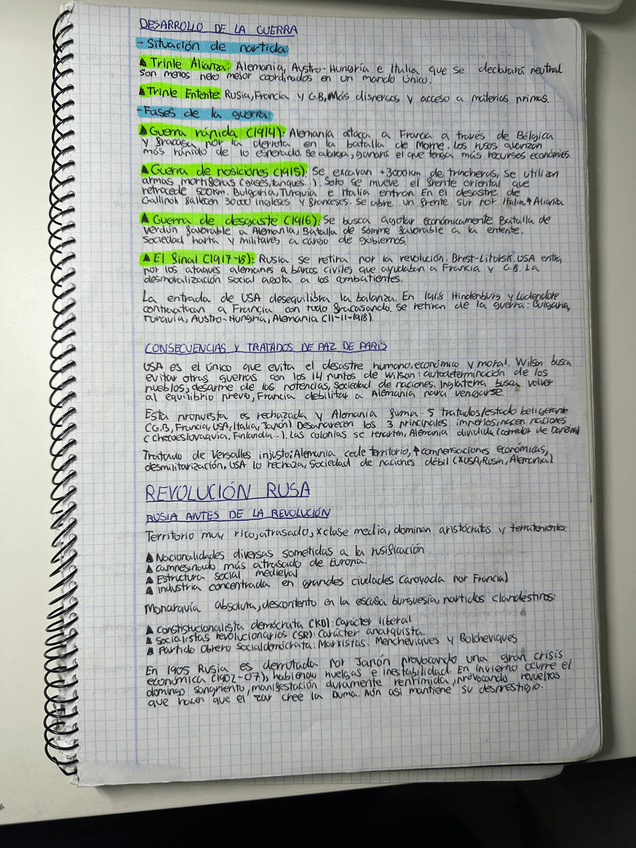 DESARROLLO DE LA GUERRA
- Situación de partida:
▲ Triple Alianza: Alemania, Austro-Hungría e Italia que se declarará neutral
son menos pero mejor coordinados en un mando único.
▲ Triple Entente: Rusia, Francia y G.B, Más dispersos y acceso a materias primas.
- Fases de la guerra:
▲ Guerra rápida (1914): Alemania ataca a Francia a través de Bélgica
y fracasa por la derrota en la batalla de Marne. Los rusos avanzan
más rápido de lo esperado. Se alarga, ganará el que tenga más recursos económicos.
▲ Guerra de posiciones (1915): Se excavan +3000km de trincheras, Se utilizan
armas mortíferas (gases, tanques..). Solo se mueve el frente oriental que
retrocede 500km. Bulgaria, Turquía e Italia entran. En el desastre de
Gallípoli fallecen 30000 ingleses y franceses. Se abre un frente sur por Italia
▲ Guerra de desgaste (1916): Se busca agotar económicamente. Batalla de
Verdún favorable a Alemania, Batalla de Somme favorable a la entente.
Sociedad harta y militares a cargo de gobiernos.
▲ El final (1917-18): Rusia se retira por la revolución. Brest-Litolsk. USA entra
por los ataques alemanes a barcos civiles que ayudaban a Francia y G.B. La
desmoralización social agota a los combatientes.
La entrada de USA desequilibra la balanza. En 1918 Hindenburg y
contraatacan a Francia con todo fracasando. Se retiran de la guerra: Bulgaria,
Turquía, Austro-Hungría, Alemania (11-11-1918).
CONSECUENCIAS Y TRATADOS DE PAZ DE PARÍS
USA es el único que evita el desastre humano, económico y moral. Wilson busca
evitar otras guerras con los 14 puntos de Wilson: autodeterminación de los
pueblos, desarme de las potencias, Sociedad de naciones, Inglaterra busca volver
al equilibrio previo, Francia debilitar a Alemania para vengarse
Esta propuesta es rechazada y Alemania firma 5 tratados/estado beligerante
(G.B, Francia, USA, Italia, Japón). Desaparecen los 3 principales imperios, nacen naciones
(Checoeslovaquia, Finlandia..). Las colonias se reparten, Alemania dividida (corredor de Danzing)
Tratado de Versalles injusto; Alemania cede territorio, ↑ compensaciones económicas,
desmilitarización, USA lo rechaza, Sociedad de naciones débil (XUSA, Rusia, Alemania)
REVOLUCIÓN RUSA
RUSIA ANTES DE LA REVOLUCIÓN
Territorio muy rico, atrasado, X clase media, dominan aristócratas y terratenientes.
▲ Nacionalidades diversas sometidas a la rusificación
▲ Campesinado más atrasado de Europa.
▲ Estructura social medieval
▲ Industria concentrada en grandes ciudades (apoyada por Francia)
Monarquía absoluta, descontento en la escasa burguesía, partidos clandestinos:
▲ Constistucionalista demócrata (KD): Carácter liberal
▲ Socialistas revolucionarios (SR): Carácter anarquista.
▲ Partido Obrero Socialdemócrata: Marxistas. Mencheviques y Bolcheviques
En 1905 Rusia es derrotada por Japón provocando una gran crisis
económica (1902-07), habiendo huelgas e inestabilidad. En invierno ocurre el
domingo sangriento, manifestación duramente reprimida, provocando revueltas
que hacen que el zar cree la Duma. Aún así mantiene su desprestigio.